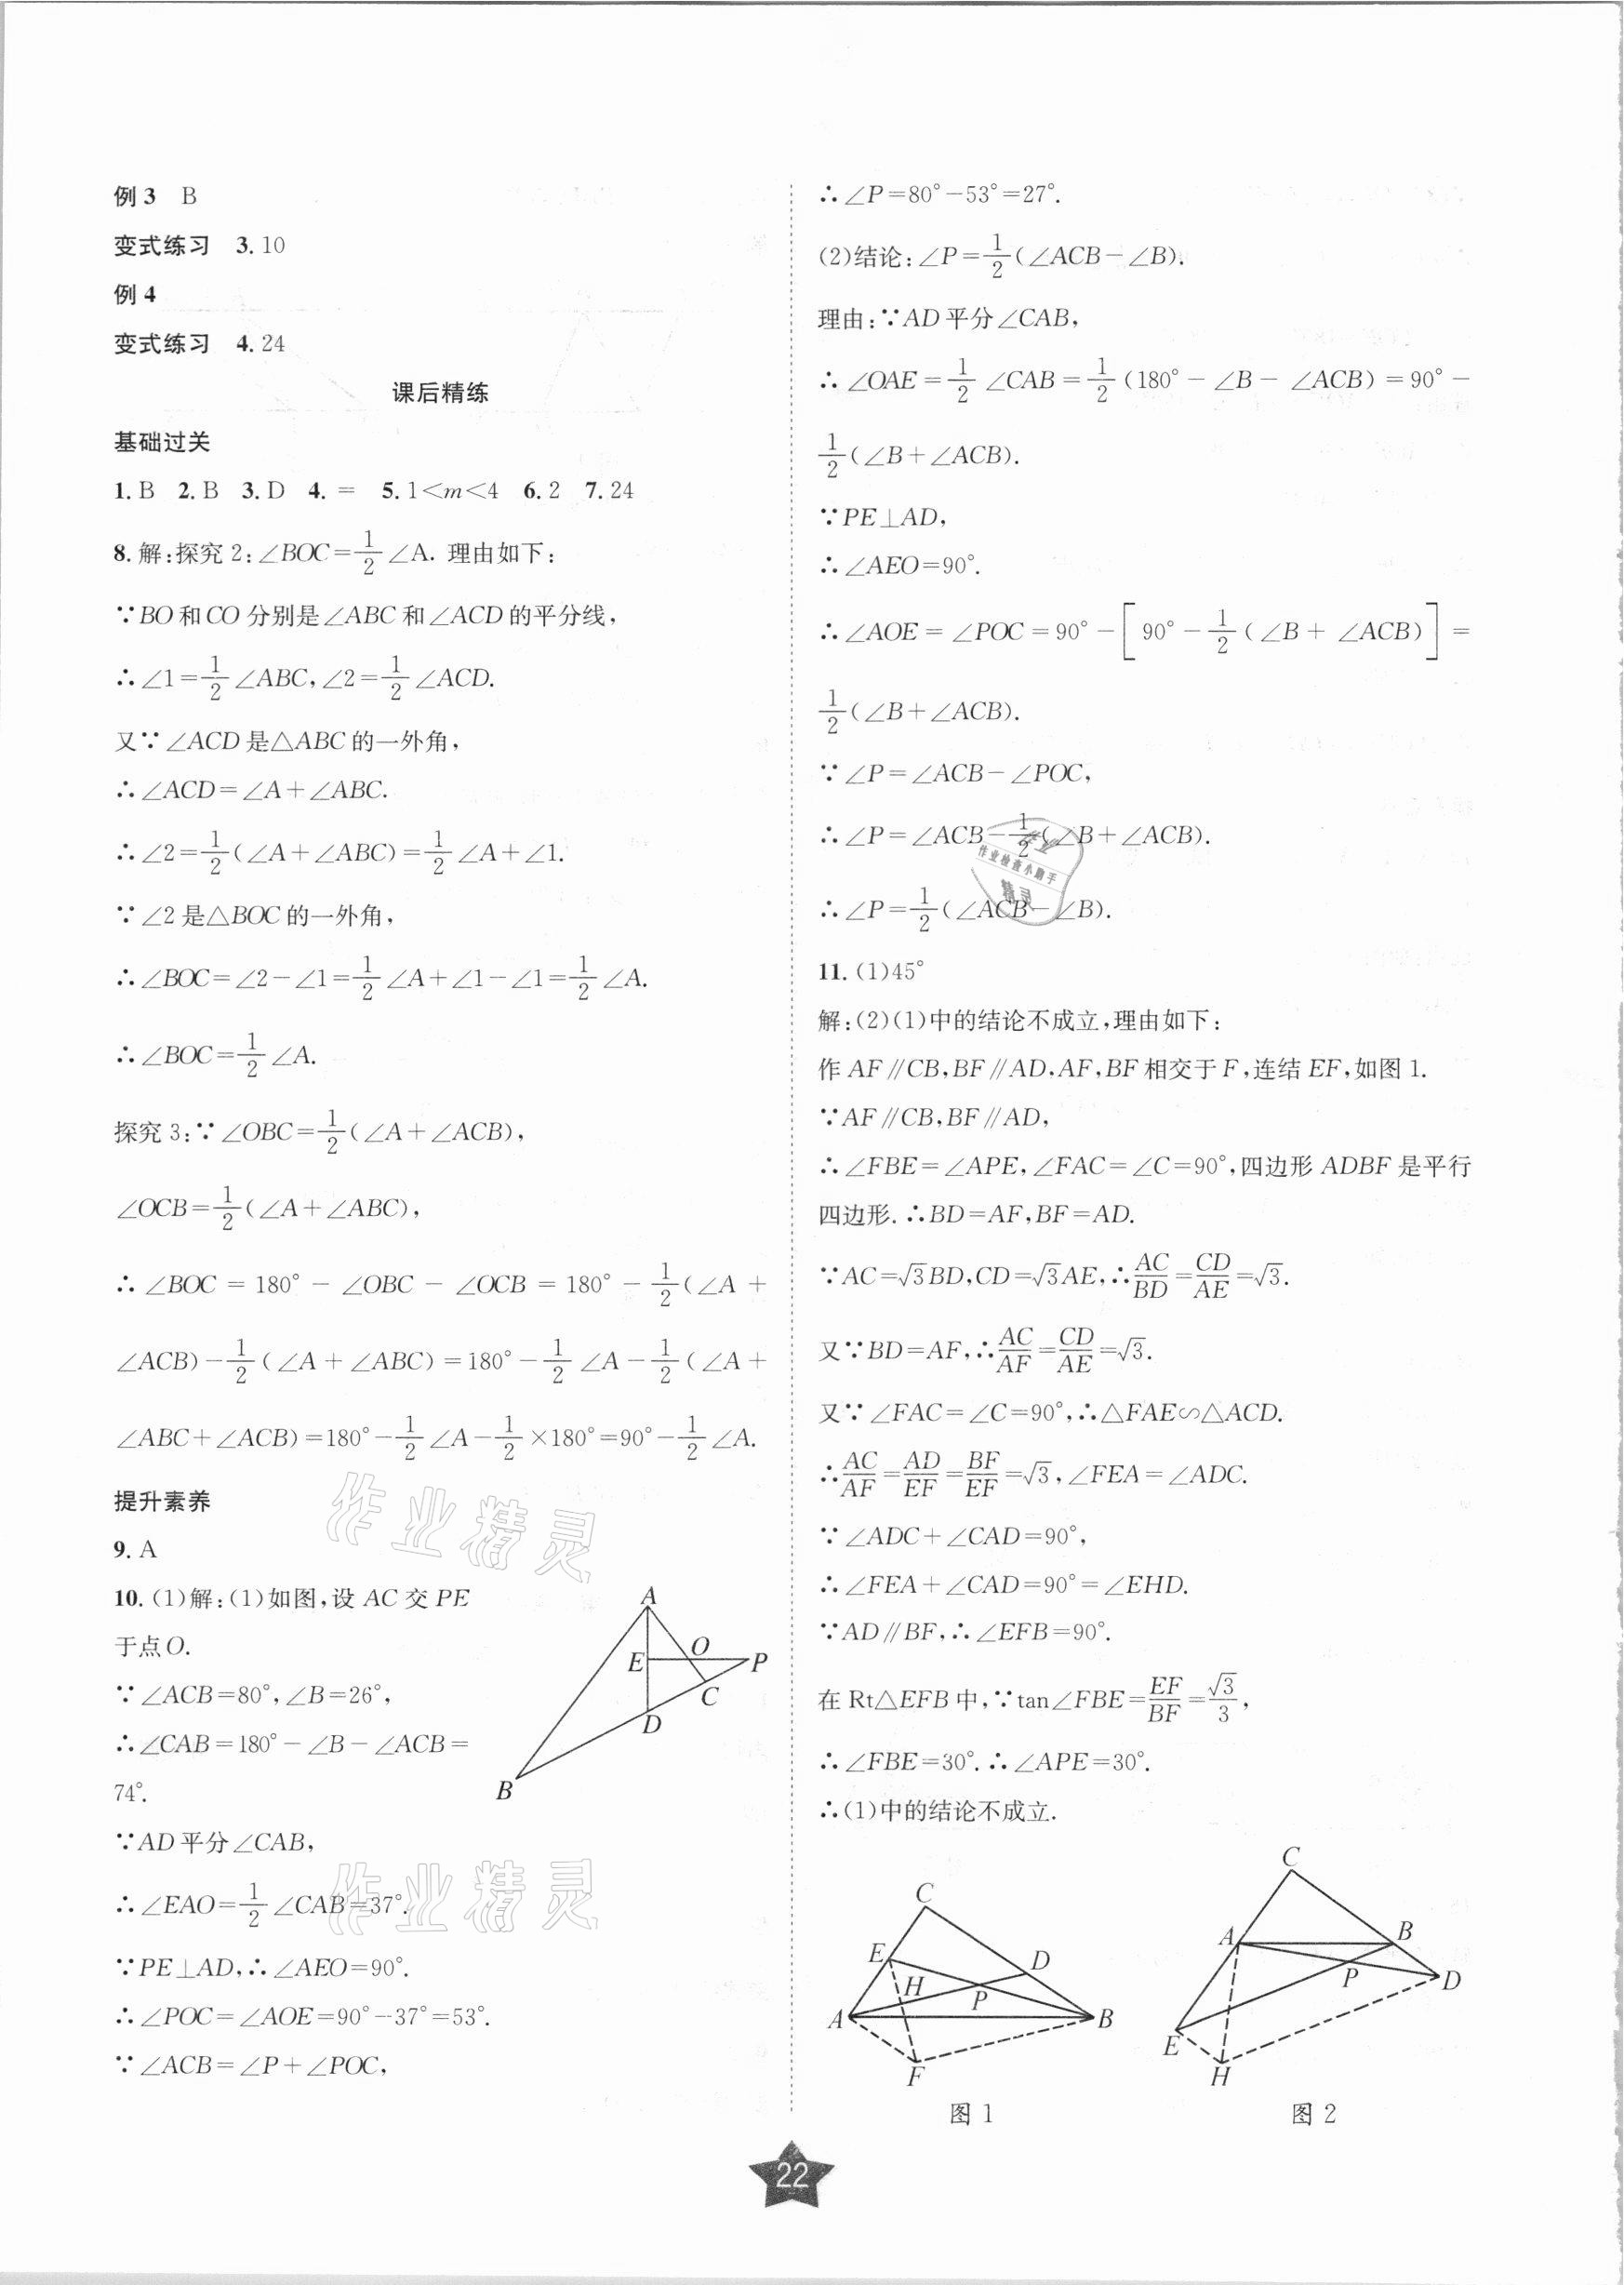 例 3 B
变式练习 3. 10
例 4
变式练习 4. 24
课后精练
基础过关
1. B 2. B 3. D 4. = 5. 1<m<4 6. 2 7. 24
8. 解:探究 2:∠BOC=1/2∠A. 理由如下:
∵BO和CO分别是∠ABC和∠ACD的平分线,
∴∠1=1/2∠ABC,∠2=1/2∠ACD.
又∵∠ACD是△ABC的一外角,
∴∠ACD=∠A+∠ABC.
∴∠2=1/2(∠A+∠ABC)=1/2∠A+∠1.
∵∠2是△BOC的一外角,
∴∠BOC=∠2-∠1=1/2∠A+∠1-∠1=1/2∠A.
∴∠BOC=1/2∠A.
探究 3:∵∠OBC=1/2(∠A+∠ACB),
∠OCB=1/2(∠A+∠ABC),
∴∠BOC=180°-∠OBC-∠OCB=180°-1/2(∠A+
∠ACB)-1/2(∠A+∠ABC)=180°-1/2∠A-1/2(∠A+
∠ABC+∠ACB)=180°-1/2∠A-1/2×180°=90°-1/2∠A.
提升素养
9. A
10. (1)解:(1)如图,设AC交PE
于点O.
∵∠ACB=80°,∠B=26°,
∴∠CAB=180°-∠B-∠ACB=
74°.
∵AD平分∠CAB,
∴∠EAO=1/2∠CAB=37°.
∵PE⊥AD,∴∠AEO=90°.
∴∠POC=∠AOE=90°-37°=53°.
∵∠ACB=∠P+∠POC,
A
O
E
P
C
D
B
作业精灵
作业精灵
∴∠P=80°-53°=27°.
(2)结论:∠P=1/2(∠ACB-∠B).
理由:∵AD平分∠CAB,
∴∠OAE=1/2∠CAB=1/2(180°-∠B-∠ACB)=90°-
1/2(∠B+∠ACB).
∵PE⊥AD,
∴∠AEO=90°.
∴∠AOE=∠POC=90°-[90°-1/2(∠B+∠ACB)]=
1/2(∠B+∠ACB).
∵∠P=∠ACB-∠POC,
∴∠P=∠ACB-1/2(∠B+∠ACB).
∴∠P=1/2(∠ACB-∠B).
作业
作业检查小助手
精灵
11. (1)45°
解:(2)(1)中的结论不成立,理由如下:
作AF∥CB,BF∥AD,AF,BF相交于F,连结EF,如图1.
∵AF∥CB,BF∥AD,
∴∠FBE=∠APE,∠FAC=∠C=90°,四边形ADBF是平行
四边形.∴BD=AF,BF=AD.
∵AC=√3BD,CD=√3AE,∴AC/BD=CD/AE=√3.
又∵BD=AF,∴AC/AF=CD/AE=√3.
又∵∠FAC=∠C=90°,∴△FAE∽△ACD.
∴AC/AF=AD/EF=BF/EF=√3,∠FEA=∠ADC.
∵∠ADC+∠CAD=90°,
∴∠FEA+∠CAD=90°=∠EHD.
∵AD∥BF,∴∠EFB=90°.
在Rt△EFB中,∵tan∠FBE=EF/BF=√3/3,
∴∠FBE=30°.∴∠APE=30°.
∴(1)中的结论不成立.
C
E
D
H
P
A
B
F
图 1
C
A
B
P
D
E
H
图 2
22